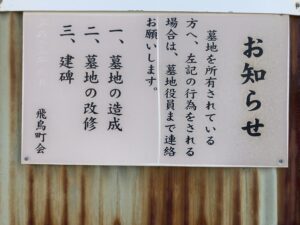 お知らせ
墓地を所有されている
方へ、左記の行為をされる
場合は、墓地役員まで連絡
お願いします。
一、墓地の造成
二、墓地の改修
三、建碑
飛鳥町会